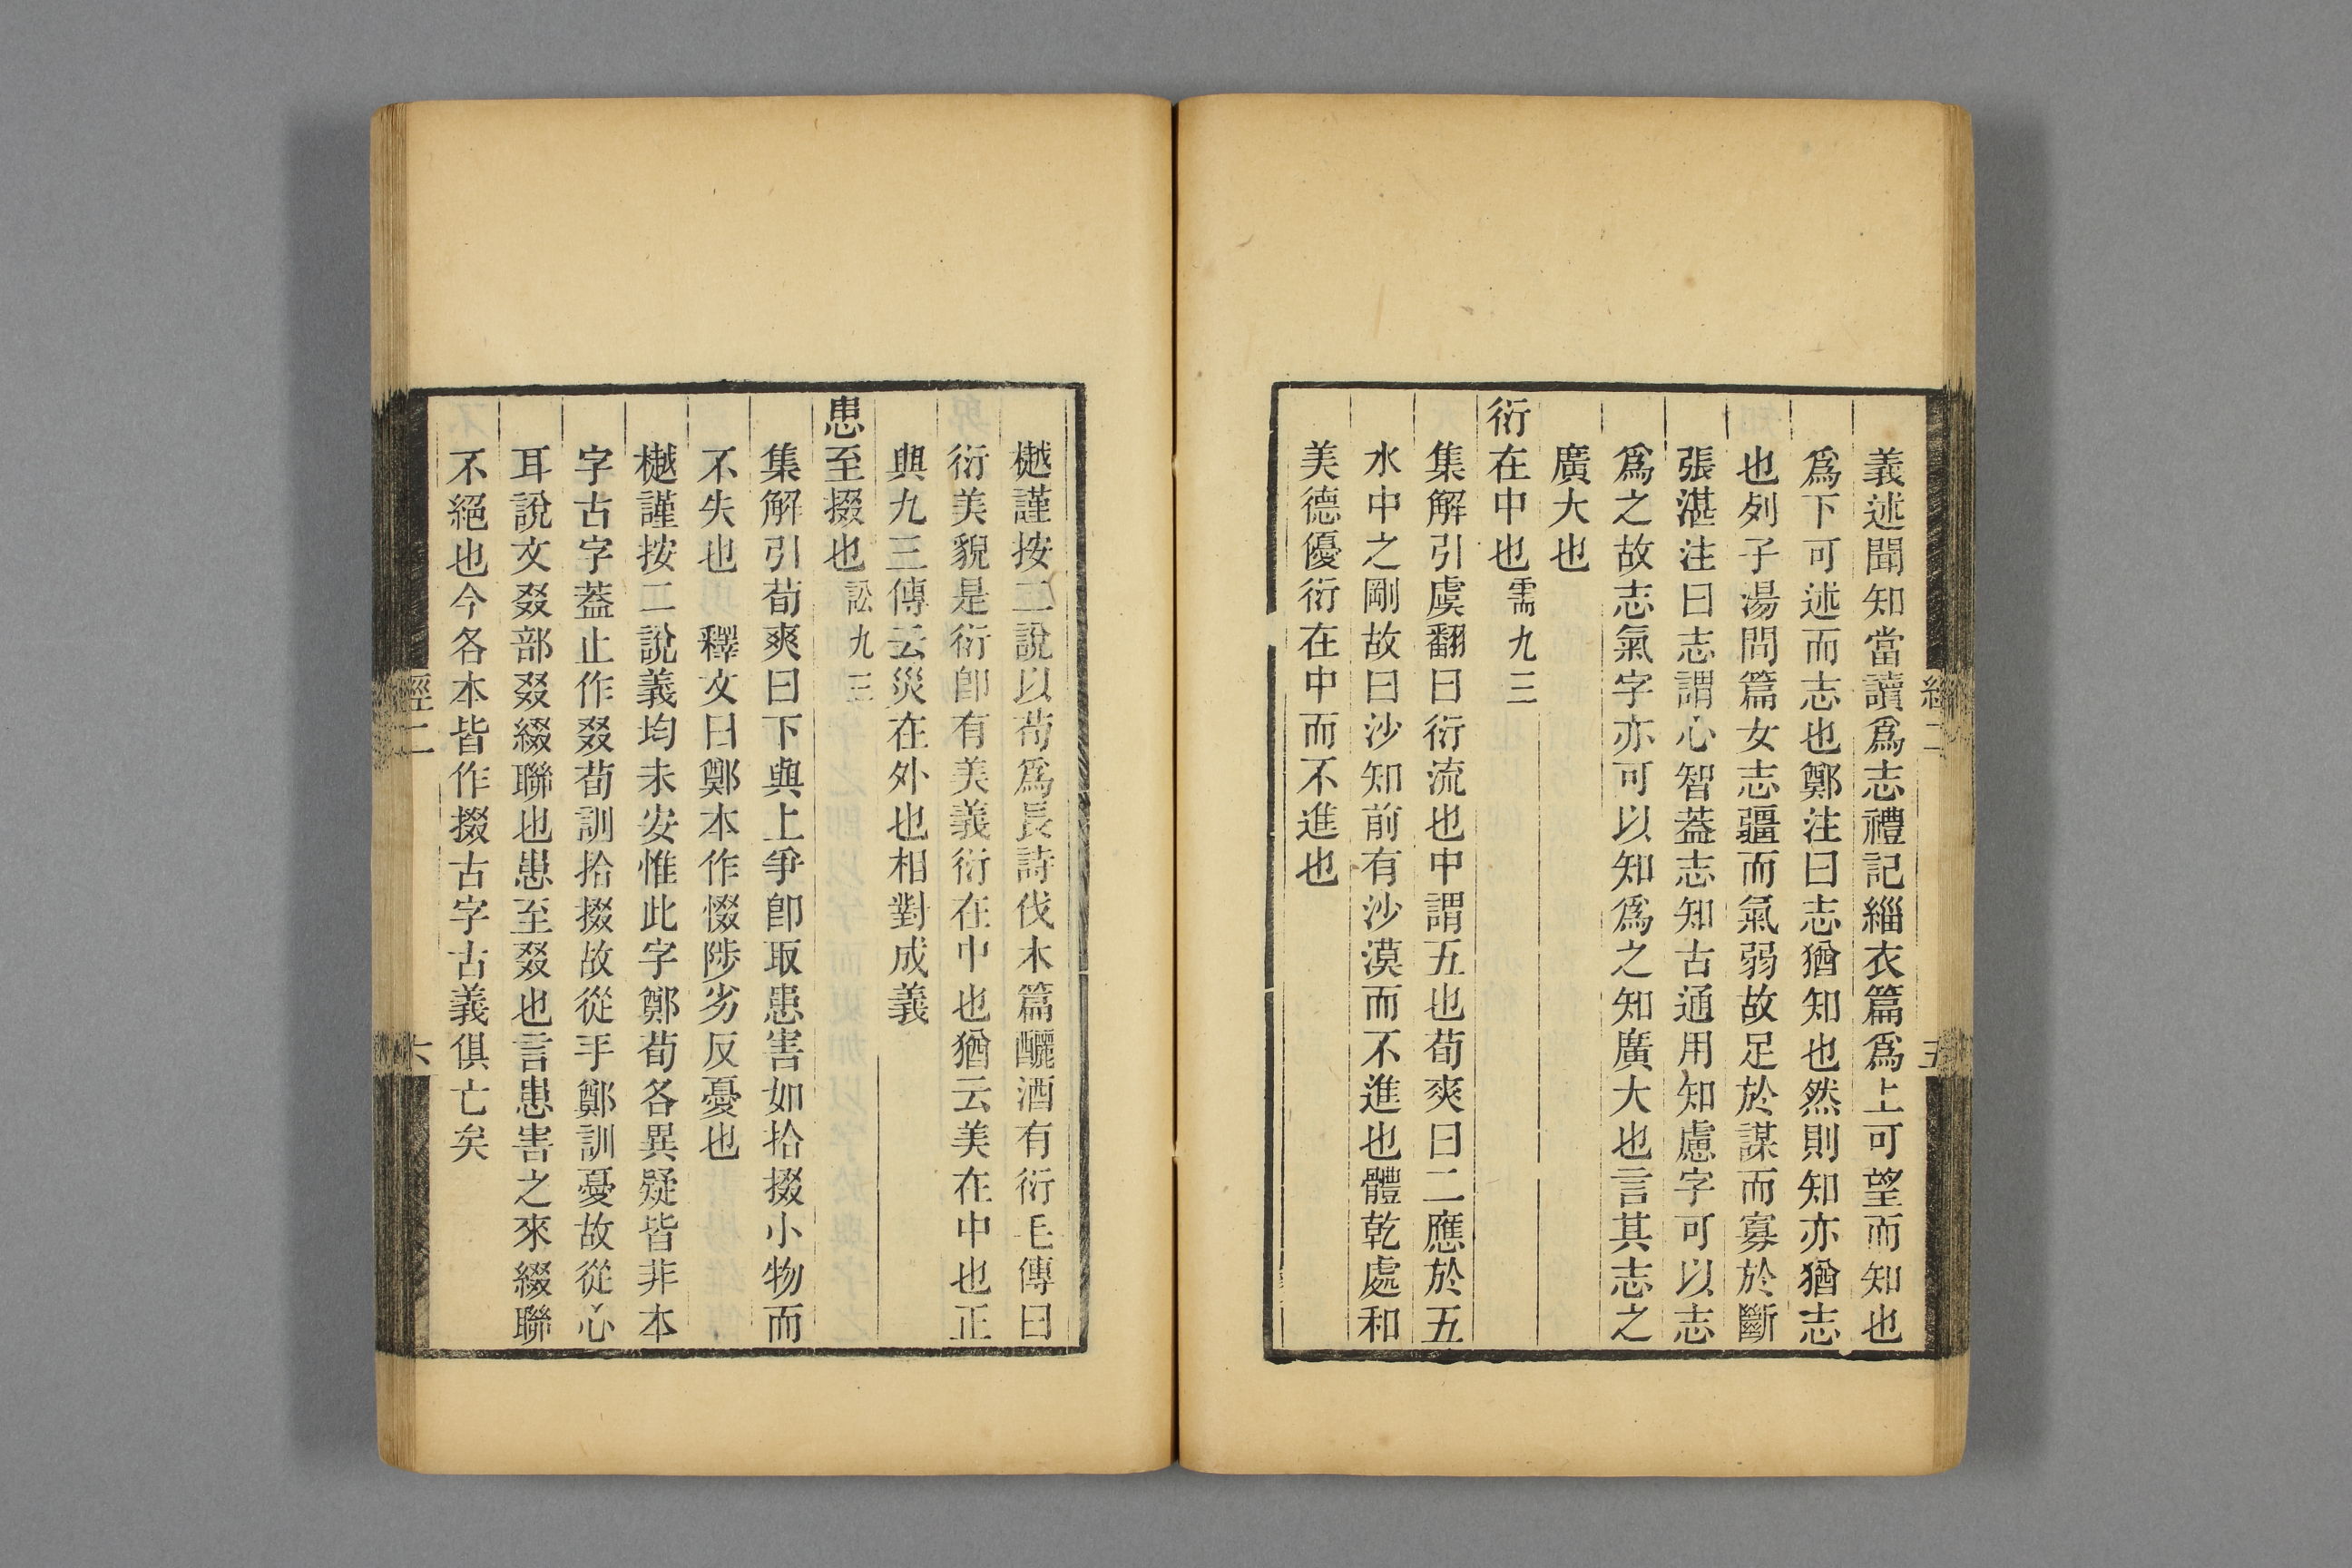 義述聞知當讀爲志禮記緇衣篇爲上可望而知也
爲下可述而志也鄭注曰志猶知也然則知亦猶志
也列子湯問篇女志疆而氣弱故足於謀而寡於斷
張湛注曰志謂心智葢志知古通用知慮字可以志
爲之故志氣字亦可以知爲之知廣大也言其志之
廣大也
衍在中也需九三
集解引虞翻曰衍流也中謂五也荀爽曰二應於五
水中之剛故曰沙知前有沙漠而不進也體乾處和
美德優衍在中而不進也
樾謹按二說以荀爲長詩伐木篇釃酒有衍毛傳曰
衍美貌是衍卽有美義衍在中也猶云美在中也正
與九三傳云災在外也相對成義
患至掇也訟九三
集解引荀爽曰下與上爭卽取患害如拾掇小物而
不失也 釋文曰鄭本作惙陟劣反憂也
樾謹按二說義均未安惟此字鄭荀各異疑皆非本
字古字葢止作叕荀訓拾掇故從手鄭訓憂故從心
耳說文叕部叕綴聯也患至叕也言患害之來綴聯
不絕也今各本皆作掇古字古義俱亡矣
經二
六